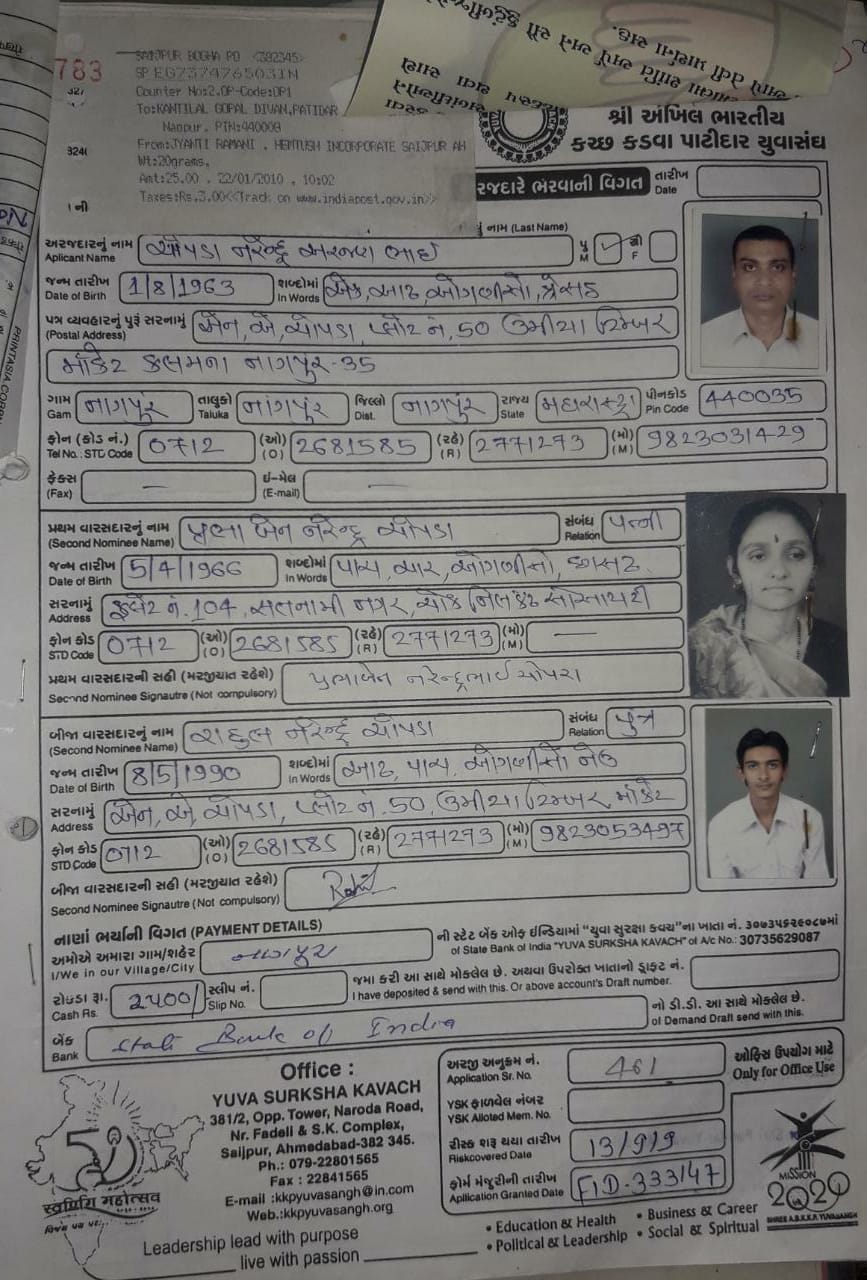 783
SAIJPUR BOGHA PO <382345>
SP EG737476503IN
Counter No:2,OP-Code:OP1
To:KANTILAL GOPAL DIVAN,PATIDAR
Nagpur, PIN:440008
From:JYANTI RAMANI , HEMTUSH INCORPORATE SAIJPUR AH
Wt:20grams,
Amt:25.00 , 22/01/2010 , 10:02
Taxes:Rs.3.00<<Track on www.indiapost.gov.in>>
શ્રી અખિલ ભારતીય
કચ્છ કડવા પાટીદાર યુવાસંઘ
રજદારે ભરવાની વિગત તારીખ Date
નામ (Last Name)
અરજદારનું નામ Aplicant Name ચોપડા નરેન્દ્ર અરજણ ભાઈ પુ M ✓ સ્ત્રી F
જન્મ તારીખ Date of Birth 1/8/1963 શબ્દોમાં In Words એક, આઠ, ઓગણીસો, ત્રેસઠ
પત્ર વ્યવહારનું પુરૂં સરનામું (Postal Address) એન, એ, ચોપડા, પ્લોટ નં, 50 ઉમીયા ટિમ્બર
માર્કેટ કલમના નાગપુર-35
ગામ Gam નાગપુર તાલુકો Taluka નાગપુર જિલ્લો Dist. નાગપુર રાજ્ય State મહારાસ્ટ્રા પીનકોડ Pin Code 440035
ફોન (કોડ નં.) Tel No.: STD Code 0712 (ઓ) (O) 2681585 (રહે) (R) 2771273 (મો) (M) 9823031429
ફેક્સ (Fax) — ઈ-મેલ (E-mail) —
પ્રથમ વારસદારનું નામ (Second Nominee Name) પ્રભા બેન નરેન્દ્ર ચોપડા સંબંધ Relation પત્ની
જન્મ તારીખ Date of Birth 5/4/1966 શબ્દોમાં In Words પાચ, ચાર, ઓગણીસો, છાસઠ
સરનામું Address ફ્લેટ નં. 104, સતનામી નગર, ચોક નિલકંઠ સોસાયટી
ફોન કોડ STD Code 0712 (ઓ) (O) 2681585 (રહે) (R) 2771273 (મો) (M) —
પ્રથમ વારસદારની સહી (મરજીયાત રહેશે) Second Nominee Signautre (Not compulsory) પ્રભાબેન નરેન્દ્રભાઈ ચોપરા
બીજા વારસદારનું નામ (Second Nominee Name) રાહુલ નરેન્દ્ર ચોપડા સંબંધ Relation પુત્ર
જન્મ તારીખ Date of Birth 8/5/1990 શબ્દોમાં In Words આઠ, પાચ, ઓગણીસો નેઉ
સરનામું Address એન, એ, ચોપડા, પ્લોટ નં. 50, ઉમીયા ટિમ્બર માર્કેટ
ફોન કોડ STD Code 0712 (ઓ) (O) 2681585 (રહે) (R) 2771273 (મો) (M) 9823053497
બીજા વારસદારની સહી (મરજીયાત રહેશે) Second Nominee Signautre (Not compulsory)
નાણાં ભર્યાની વિગત (PAYMENT DETAILS) ની સ્ટેટ બેંક ઓફ ઈન્ડિયામાં "યુવા સુરક્ષા કવચ"ના ખાતા નં. ૩૦૭૩૫૬૨૯૦૮૭માં
અમોએ અમારા ગામ/શહેર I/We in our Village/City નાગપુર of State Bank of India "YUVA SURKSHA KAVACH" of A/c No.: 30735629087
રોકડા રૂા. Cash Rs. 2400/ સ્લીપ નં. Slip No. જમા કરી આ સાથે મોકલેલ છે. અથવા ઉપરોક્ત ખાતાનો ડ્રાફ્ટ નં.
I have deposited & send with this. Or above account's Draft number.
બેંક Bank Stati Bank of India નો ડી.ડી. આ સાથે મોકલેલ છે.
of Demand Draft send with this.
Office :
YUVA SURKSHA KAVACH
381/2, Opp. Tower, Naroda Road,
Nr. Fadeli & S.K. Complex,
Saijpur, Ahmedabad-382 345.
Ph.: 079-22801565
Fax : 22841565
E-mail :kkpyuvasangh@in.com
Web.:kkpyuvasangh.org
અરજી અનુક્રમ નં. Application Sr. No. 461
ઓફિસ ઉપયોગ માટે
Only for Office Use
YSK ફાળવેલ નંબર YSK Alloted Mem. No.
રીસ્ક શરૂ થયા તારીખ Riskcovered Date 13/9/9
ફોર્મ મંજુરીની તારીખ Apllication Granted Date FID-333/47
સ્વર્ણિમ મહોત્સવ
MISSION
2020
SHREE A.B.K.K.P. YUVASANGH
Leadership lead with purpose
live with passion
• Education & Health • Business & Career
• Political & Leadership • Social & Spiritual